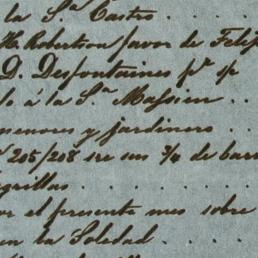 la S.ª Castro
H. Robertson favor de Felip
D. Desfontaines p.r s/p
lo á la S.ª Massieu . .
menores y jardinero . . .
205/208 s/re sus 3/4 de barr
grillas . . . . . .
or el presente mes sobre
en la Soledad . . . .